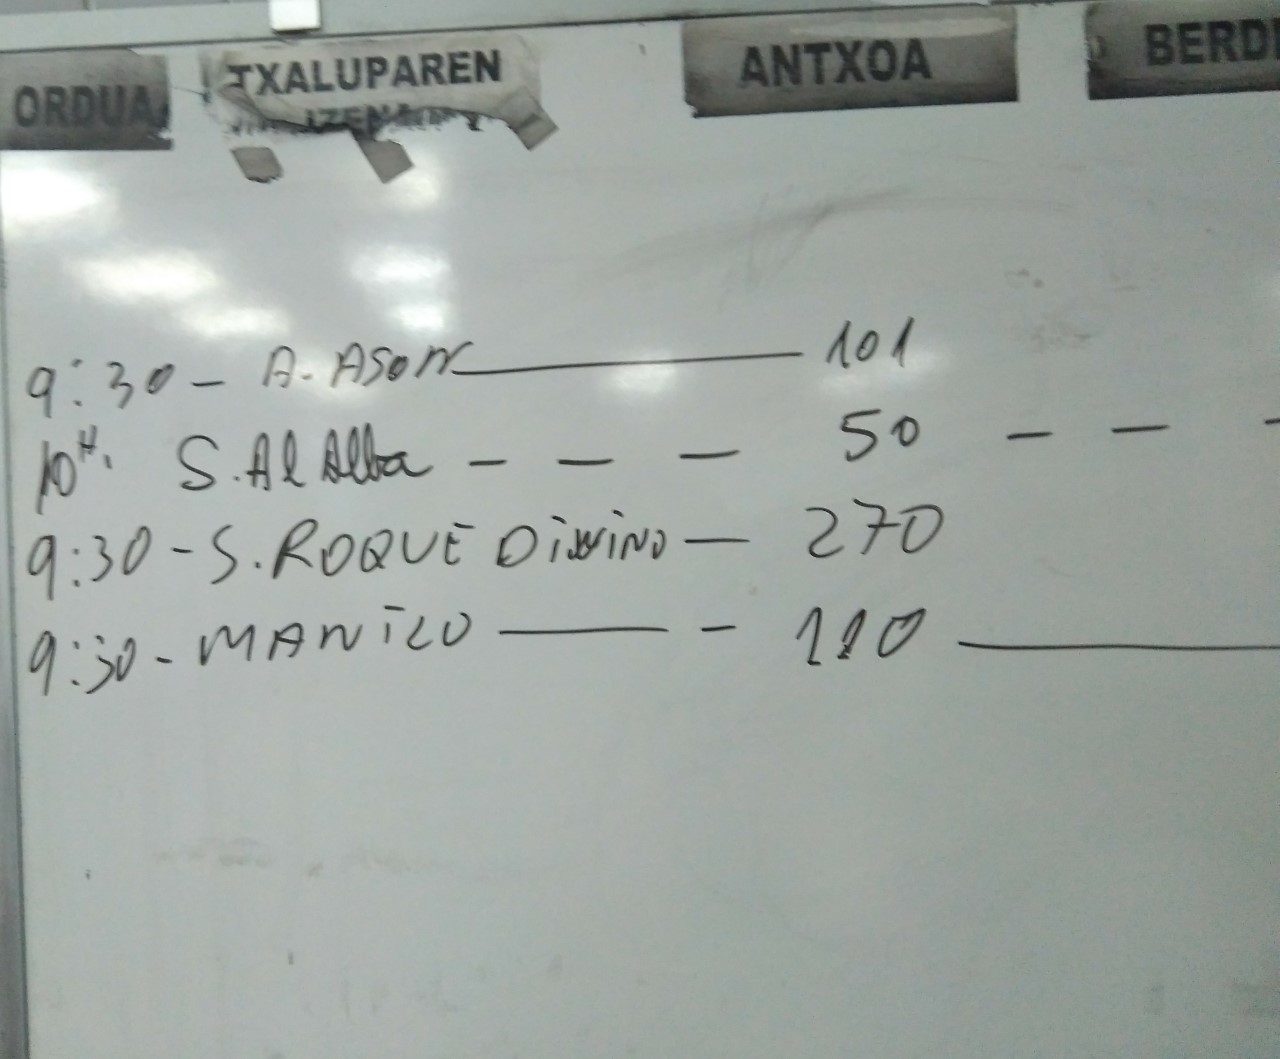 ORDUA TXALUPAREN ANTXOA BERD
IZENA
9:30 - A. ASON 101
10H. S. Al Alba - - - 50 - - -
9:30 - S. ROQUE DiViNO - 270
9:30 - MANiLO - 110